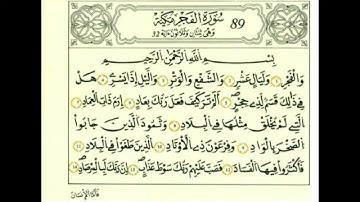 سُورَةُ الفَجْرِ مَكِيَّة
89
وَهِيَ ثَلَاثُونَ آيَة
بِسْمِ اللَّهِ الرَّحْمَٰنِ الرَّحِيمِ
وَالْفَجْرِ ۝ وَلَيَالٍ عَشْرٍ ۝ وَالشَّفْعِ وَالْوَتْرِ ۝ وَالَّيْلِ إِذَا يَسْرِ ۝ هَلْ
فِي ذَٰلِكَ قَسَمٌ لِّذِي حِجْرٍ ۝ أَلَمْ تَرَ كَيْفَ فَعَلَ رَبُّكَ بِعَادٍ ۝ إِرَمَ ذَاتِ الْعِمَادِ ۝
الَّتِي لَمْ يُخْلَقْ مِثْلُهَا فِي الْبِلَادِ ۝ وَثَمُودَ الَّذِينَ جَابُوا
الصَّخْرَ بِالْوَادِ ۝ وَفِرْعَوْنَ ذِي الْأَوْتَادِ ۝ الَّذِينَ طَغَوْا فِي الْبِلَادِ ۝
فَأَكْثَرُوا فِيهَا الْفَسَادَ ۝ فَصَبَّ عَلَيْهِمْ رَبُّكَ سَوْطَ عَذَابٍ ۝ إِنَّ رَبَّكَ لَبِالْمِرْصَادِ ۝
فَأَمَّا الْإِنْسَانُ